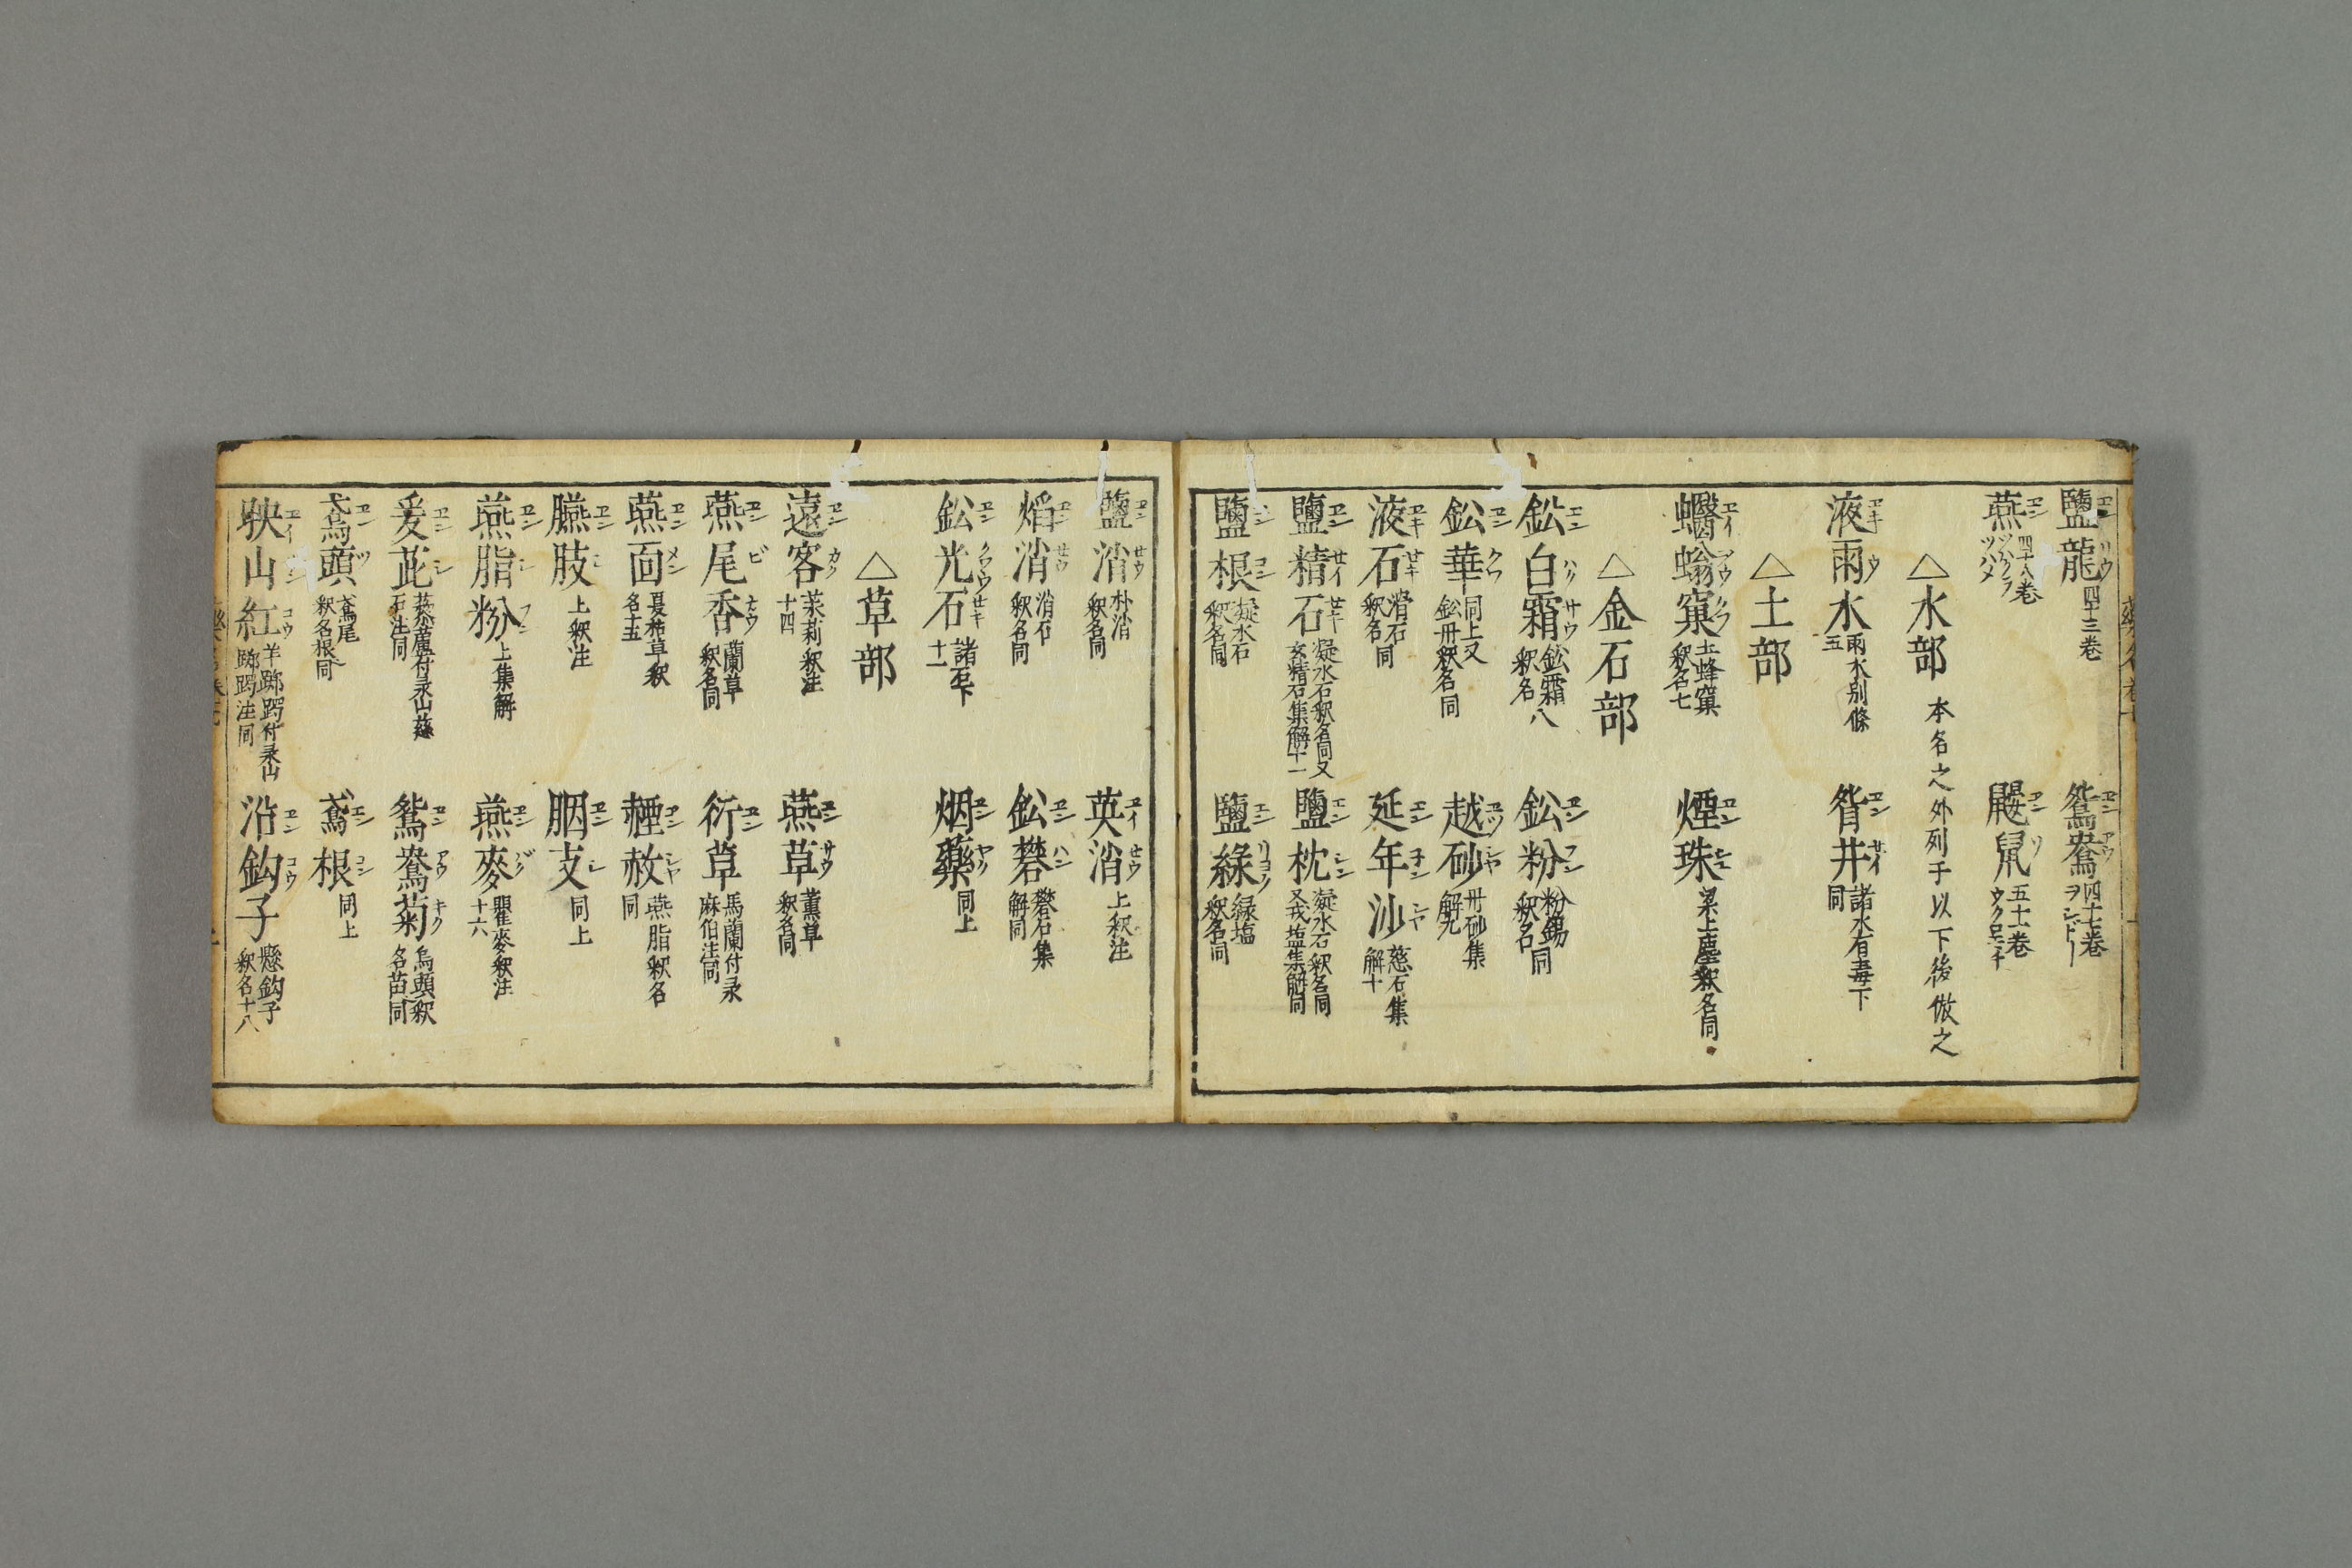 鹽龍 四十三卷 鴛鴦 四十七卷
燕 四十八卷 ツバクラ ツバメ 鼹鼠 五十一卷
△水部 本名之外列于以下後倣之
液雨水 雨水别條 五 眢井 諸水有毒下 同
△土部
蠮螉窠 土蜂窠 釈名七 煙珠 梁上塵釈名同
△金石部
鈆白霜 鈆霜 釈名 八 鈆粉 粉錫 釈名同
鈆華 同上又 鈆丹釈名同 越砂 丹砂集 解九
液石 滑石 釈名同 延年沙 慈石集 解十
鹽精石 凝水石釈名同又 玄精石集解十一 鹽枕 凝水石釈名同 又戎塩集解同
鹽根 凝水石 釈名同 鹽綠 緑塩 釈名同
鹽消 朴消 釈名同 英消 上釈注
焰消 消石 釈名同 鈆礬 礬石集 解同
鈆光石 諸石下 十一 烟藥 同上
△草部
遠客 茉莉釈注 十四 燕草 薫草 釈名同
燕尾香 蘭草 釈名同 衍草 馬蘭付录 麻伯注同
燕面 夏枯草釈 名十五 赦 燕脂釈名 同
臙肢 上釈注 胭支 同上
燕脂粉 上集解 燕麥 瞿麥釈注 十六
爰茈 付录山慈 石注同 鴛鴦菊 烏頭釈 名苗同
鳶頭 鳶尾 釈名根同 鳶根 同上
山紅 羊躑躅付录山 躑躅注同 沿鈎子 懸鈎子 釈名十八